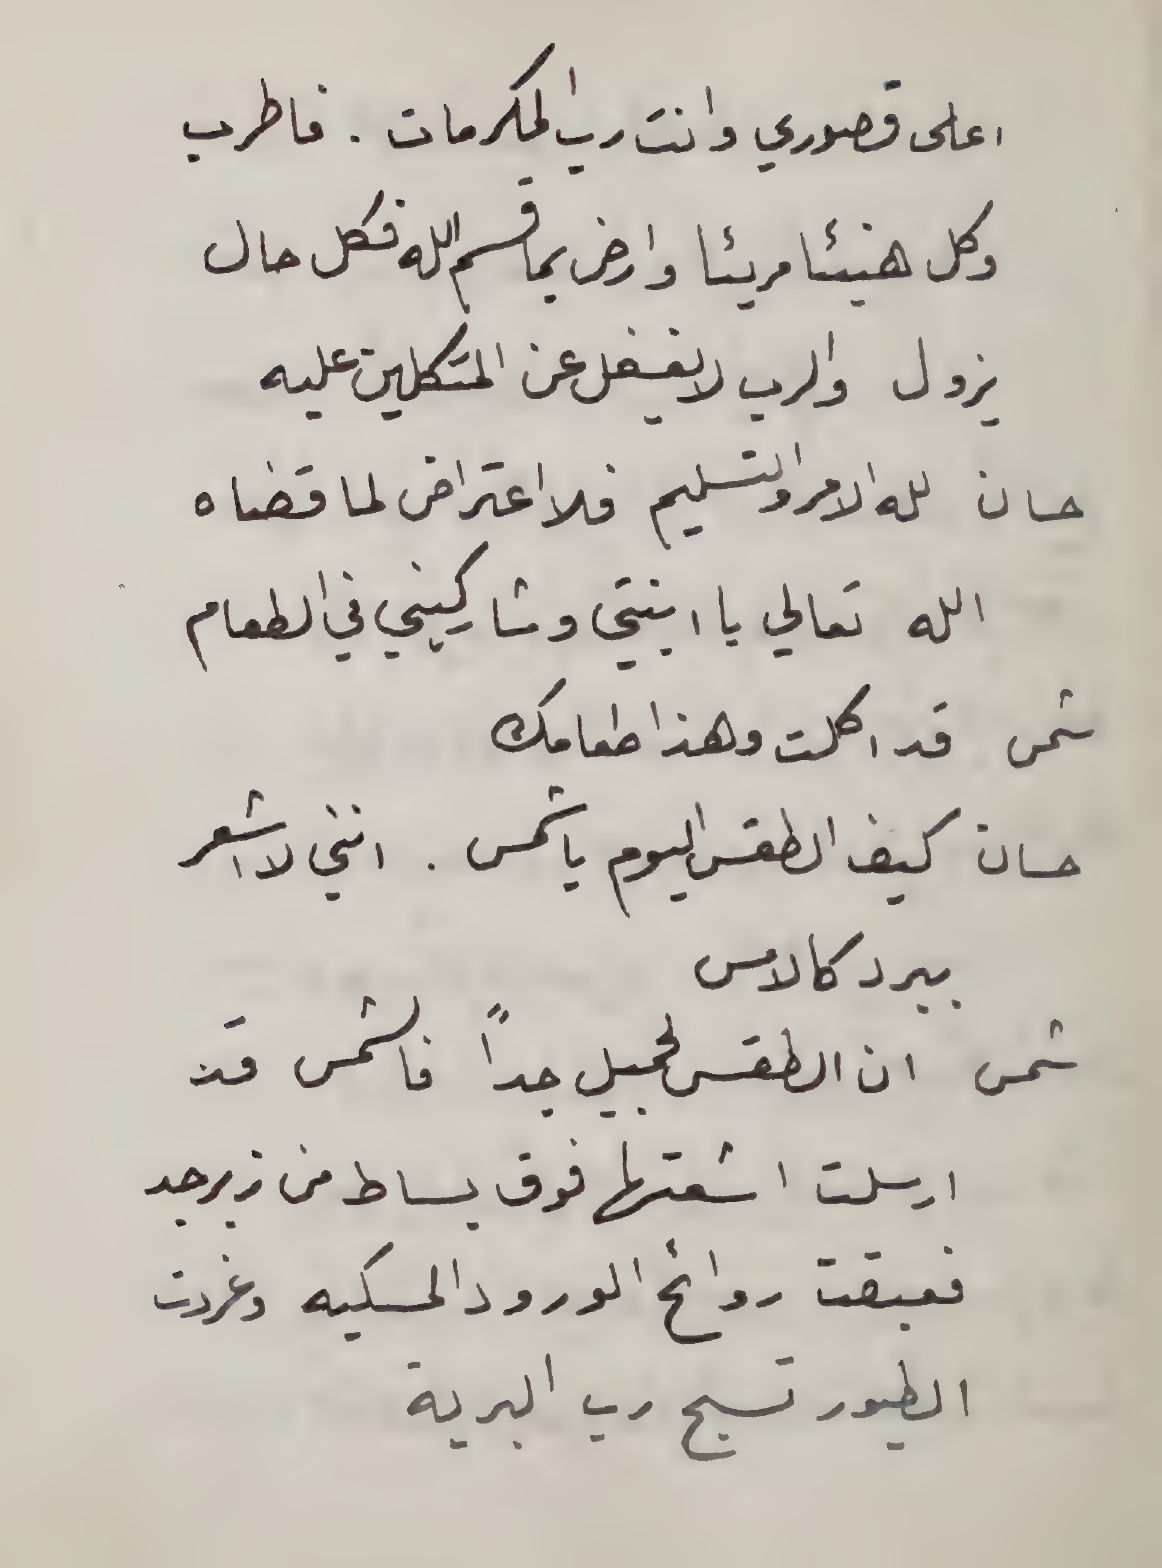 اعلى قصوري وانت رب المكرمات . فاطرب
وكل هنيئا مريئا وارض بما قسم الله فكل حال
يزول والرب لا يغفل عن المتكلين عليه
حسان لله الامر والتسليم فلا اعتراض لما قضاه
الله تعالي يا ابنتي وشاركيني في الطعام
شمس قد اكلت وهذا طعامك
حسان كيف الطقس اليوم يا شمس . انني لا اشعر
ببرد كالامس
شمس ان الطقس لجميل جداً فالشمس قد
ارسلت اشعتها فوق بساط من زبرجد
فعبقت روائح الورود المسكيه وغردت
الطيور تسبح رب البرية